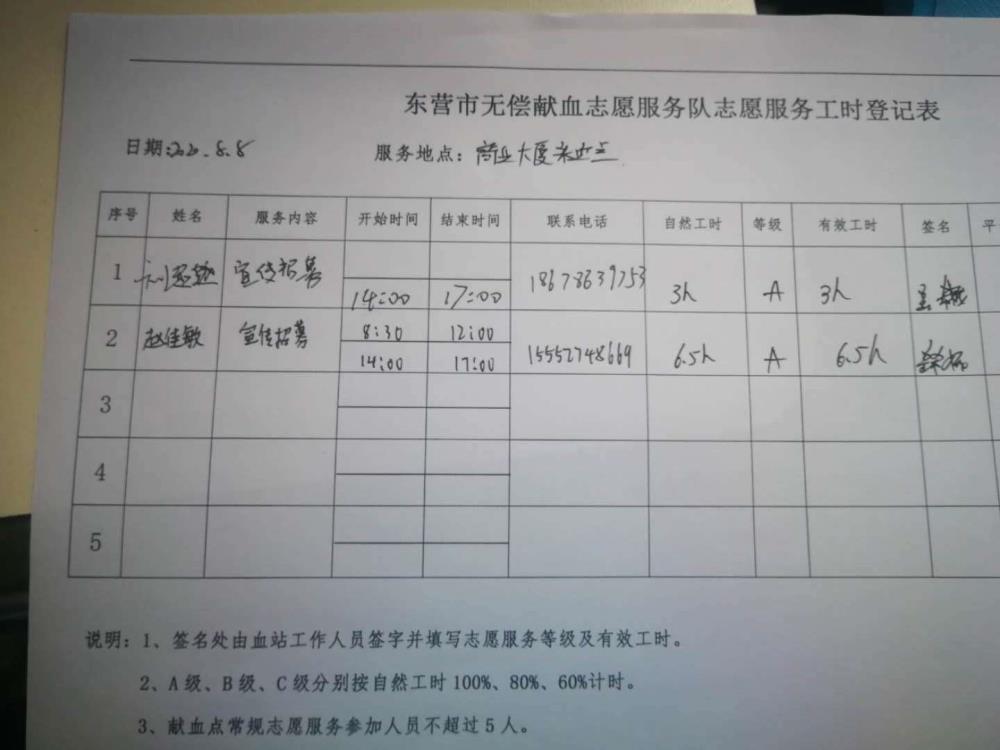 东营市无偿献血志愿服务队志愿服务工时登记表
日期:202.8.8 服务地点:商业大厦采血点
序号 姓名 服务内容 开始时间 结束时间 联系电话 自然工时 等级 有效工时 签名 平
1 宣传招募 14:00 17:00 18678639753 3h A 3h
2 赵佳敏 宣传招募 8:30 12:00 15552748669 6.5h A 6.5h
14:00 17:00
3
4
5
说明:1、签名处由血站工作人员签字并填写志愿服务等级及有效工时。
2、A级、B级、C级分别按自然工时100%、80%、60%计时。
3、献血点常规志愿服务参加人员不超过5人。